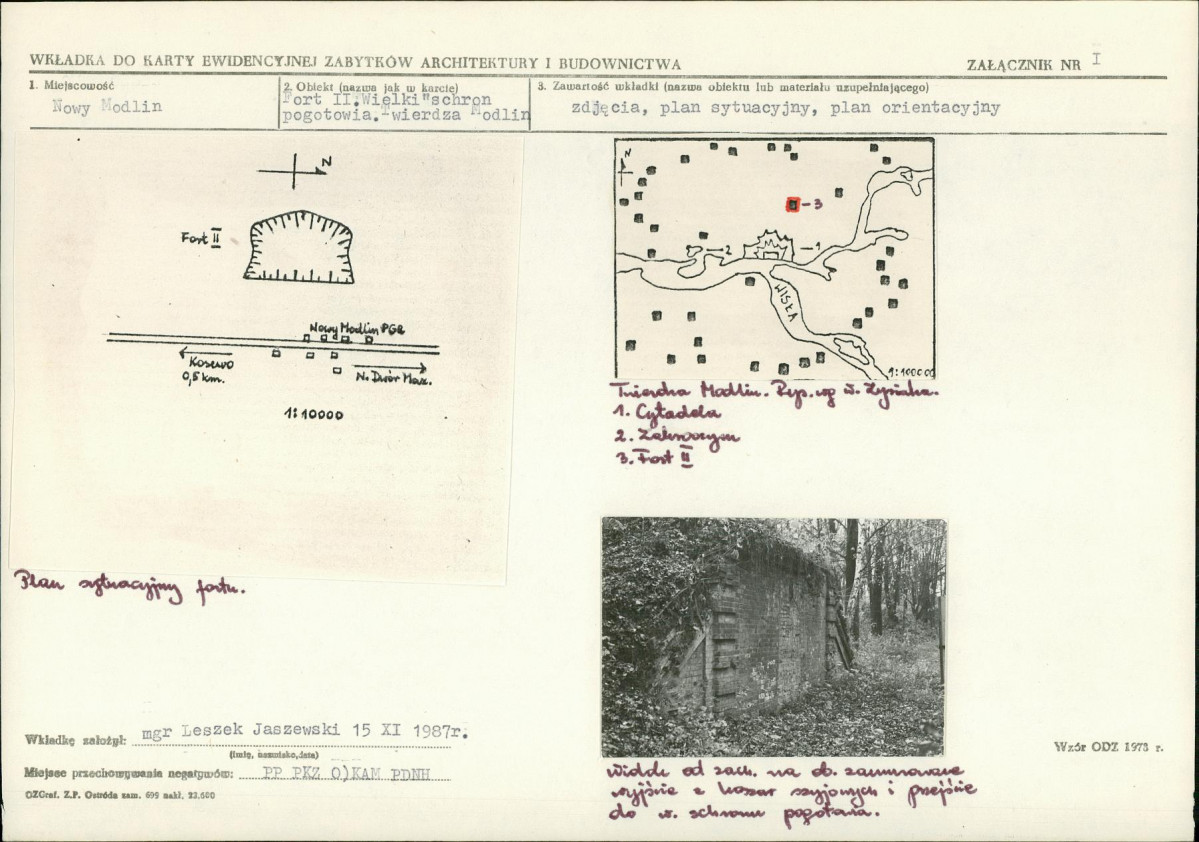 WKŁADKA DO KARTY EWIDENCYJNEJ ZABYTKÓW ARCHITEKTURY I BUDOWNICTWA
ZAŁĄCZNIK NR I
1. Miejscowość
Nowy Modlin
2. Obiekt (nazwa jak w karcie)
Fort II."Wielki"schron
pogotowia.Twierdza Modlin
3. Zawartość wkładki (nazwa obiektu lub materiału uzupełniającego)
zdjęcia, plan sytuacyjny, plan orientacyjny
N
Fort II
Nowy Modlin PGR
Kosewo
0,5 km.
N. Dwór Maz.
1:10000
Plan sytuacyjny fortu.
N
3
2
1
WISŁA
1:100000
Twierdza Modlin. Rys. wg
1. Cytadela
2. Zakroczym
3. Fort II
Widok od zach. na ob. zamurowane
wyjście z koszar szyjowych i przejście
do w. schronu pogotowia.
Wkładkę założył: mgr Leszek Jaszewski 15 XI 1987r.
(imię, nazwisko, data)
Miejsce przechowywania negatywów: PP PKZ O)KAM PDNH
OZGraf. Z.P. Ostróda zam. 699 nakł. 23.600
Wzór ODZ 1978 r.